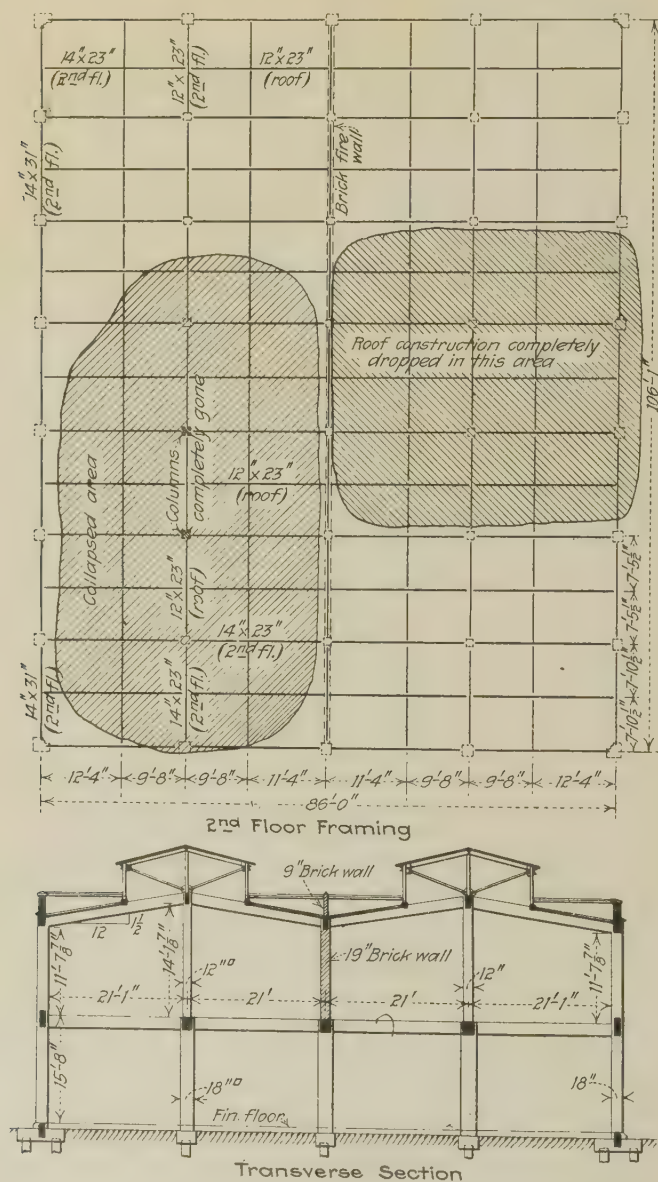 14"x23"
(2nd fl.)
12"x23"
(2nd fl.)
12"x23"
(roof)
14"x31"
(2nd fl.)
Brick fire
wall
Roof construction completely
dropped in this area
106'-1"
Collapsed area
Columns
completely gone
12"x23"
(roof)
12"x23"
(roof)
14"x23"
(2nd fl.)
14"x31"
(2nd fl.)
14"x23"
(2nd fl.)
7'-5½"
7'-5½"
7'-10½"
7'-10½"
12'-4" 9'-8" 9'-8" 11'-4" 11'-4" 9'-8" 9'-8" 12'-4"
86'-0"
2nd Floor Framing
9" Brick wall
12
1½
11'-7⅞"
14'-1⅛"
12"□
19" Brick wall
12"
11'-7⅞"
21'-1" 21' 21' 21'-1"
15'-8"
18"□
18"
Fin. floor
Transverse Section